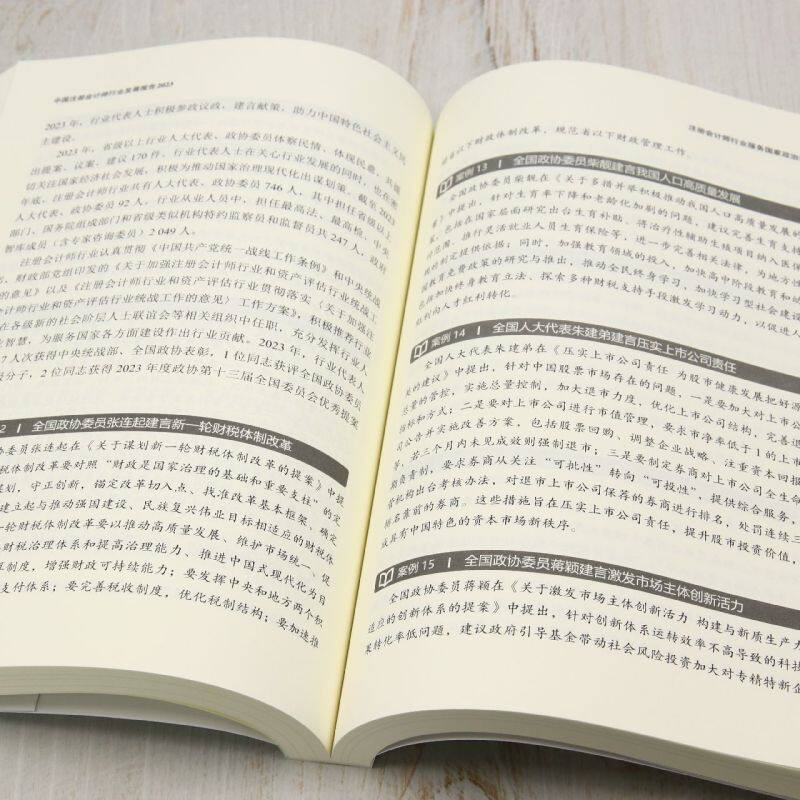 中国注册会计师行业发展报告2023
2023年，行业代表人士积极参政议政，建言献策，助力中国特色社会主义民
主建设。
2023年，省级以上行业人大代表、政协委员体察民情、体现民意，共提
出提案、议案、建议170件，行业代表人士在关心行业发展的同时，也在密
切关注国家经济社会发展，积极为推动国家治理现代化出谋划策。截至2023
年底，注册会计师行业共有人大代表、政协委员746人，其中担任省级以上
人大代表、政协委员92人。行业从业人员中，担任最高法、最高检、中央
部门、国务院组成部门和省级类似机构特约监察员和监督员共247人，政府
智库成员（含专家咨询委员）2 049人。
注册会计师行业认真贯彻《中国共产党统一战线工作条例》和中央统战
部、财政部党组印发的《关于加强注册会计师行业和资产评估行业统战工
的意见》以及《注册会计师行业和资产评估行业贯彻落实〈关于加强注
计师行业和资产评估行业统战工作的意见〉工作方案》，积极推荐行业
在各级新的社会阶层人士联谊会等相关组织中任职，充分发挥行业人
业智慧，为服务国家各方面建设作出行业贡献。2023年，行业代表人
7人次获得中央统战部、全国政协表彰，1位同志获评全国政协委员
极分子，2位同志获得2023年度政协第十三届全国委员会优秀提案
2 | 全国政协委员张连起建言新一轮财税体制改革
协委员张连起在《关于谋划新一轮财税体制改革的提案》中提
税体制改革要对照“财政是国家治理的基础和重要支柱”的定
谋划，守正创新，锚定改革切入点、找准改革基本框架，确定
建立起与推动强国建设、民族复兴伟业目标相适应的财税体
一轮财税体制改革要以推动高质量发展、维护市场统一、促
财税治理体系和提高治理能力、推进中国式现代化为目
制度，增强财政可持续能力；要发挥中央和地方两个积
支付体系；要完善税收制度，优化税制结构；要加速推
注册会计师行业服务国家政治
省以下财政体制改革，规范省以下财政管理工作。
案例 13 | 全国政协委员柴靓建言我国人口高质量发展
全国政协委员柴靓在《关于多措并举积极推动我国人口高质量发展的
中提出，针对生育率下降和老龄化加剧的问题，建议完善生育支持
包括在国家层面研究出台生育补贴，将治外性辅助生殖项目纳入医保
付范围，推行灵活就业人员生育保险等，进一步完善相关法律，为地方性
规的制定提供依据；同时，加强教育领域的投入，加快高中阶段教育和
国教育免费政策的研究与推出，推动全民终身学习，加快学习型社会建设
包括加快终身教育立法、探索多种财税支持手段激发学习动力，以促进人
红利向人才红利转化。
案例 14 | 全国人大代表朱建弟建言压实上市公司责任
全国人大代表朱建弟在《压实上市公司责任 为股市健康发展把好源
关的建议》中提出，针对中国股票市场存在的问题，一是要加大对上市公
总量的管控，实施总量控制，加大退市力度，优化上市公司结构，完善退
指标和方式；二是要对上市公司进行市值管理，要求市净率低于1的上市
公司公告并实施改善方案，包括股票回购、调整企业战略、注重资本回报
等，若三个月内未见成效则强制退市；三是要制定券商对上市公司全生命
期负责制，要求券商从关注“可批性”转向“可投性”，提供综合服务，
管机构出台考核办法，对退市上市公司保荐的券商进行排名，处罚连续三
排名靠前的券商。这些措施旨在压实上市公司责任，提升股市投资价值，
成具有中国特色的资本市场新秩序。
案例 15 | 全国政协委员蒋颖建言激发市场主体创新活力
全国政协委员蒋颖在《关于激发市场主体创新活力 构建与新质生产力
适应的创新体系的提案》中提出，针对创新体系运转效率不高导致的科技
果转化率低问题，建议政府引导基金带动社会风险投资加大对专精特新企